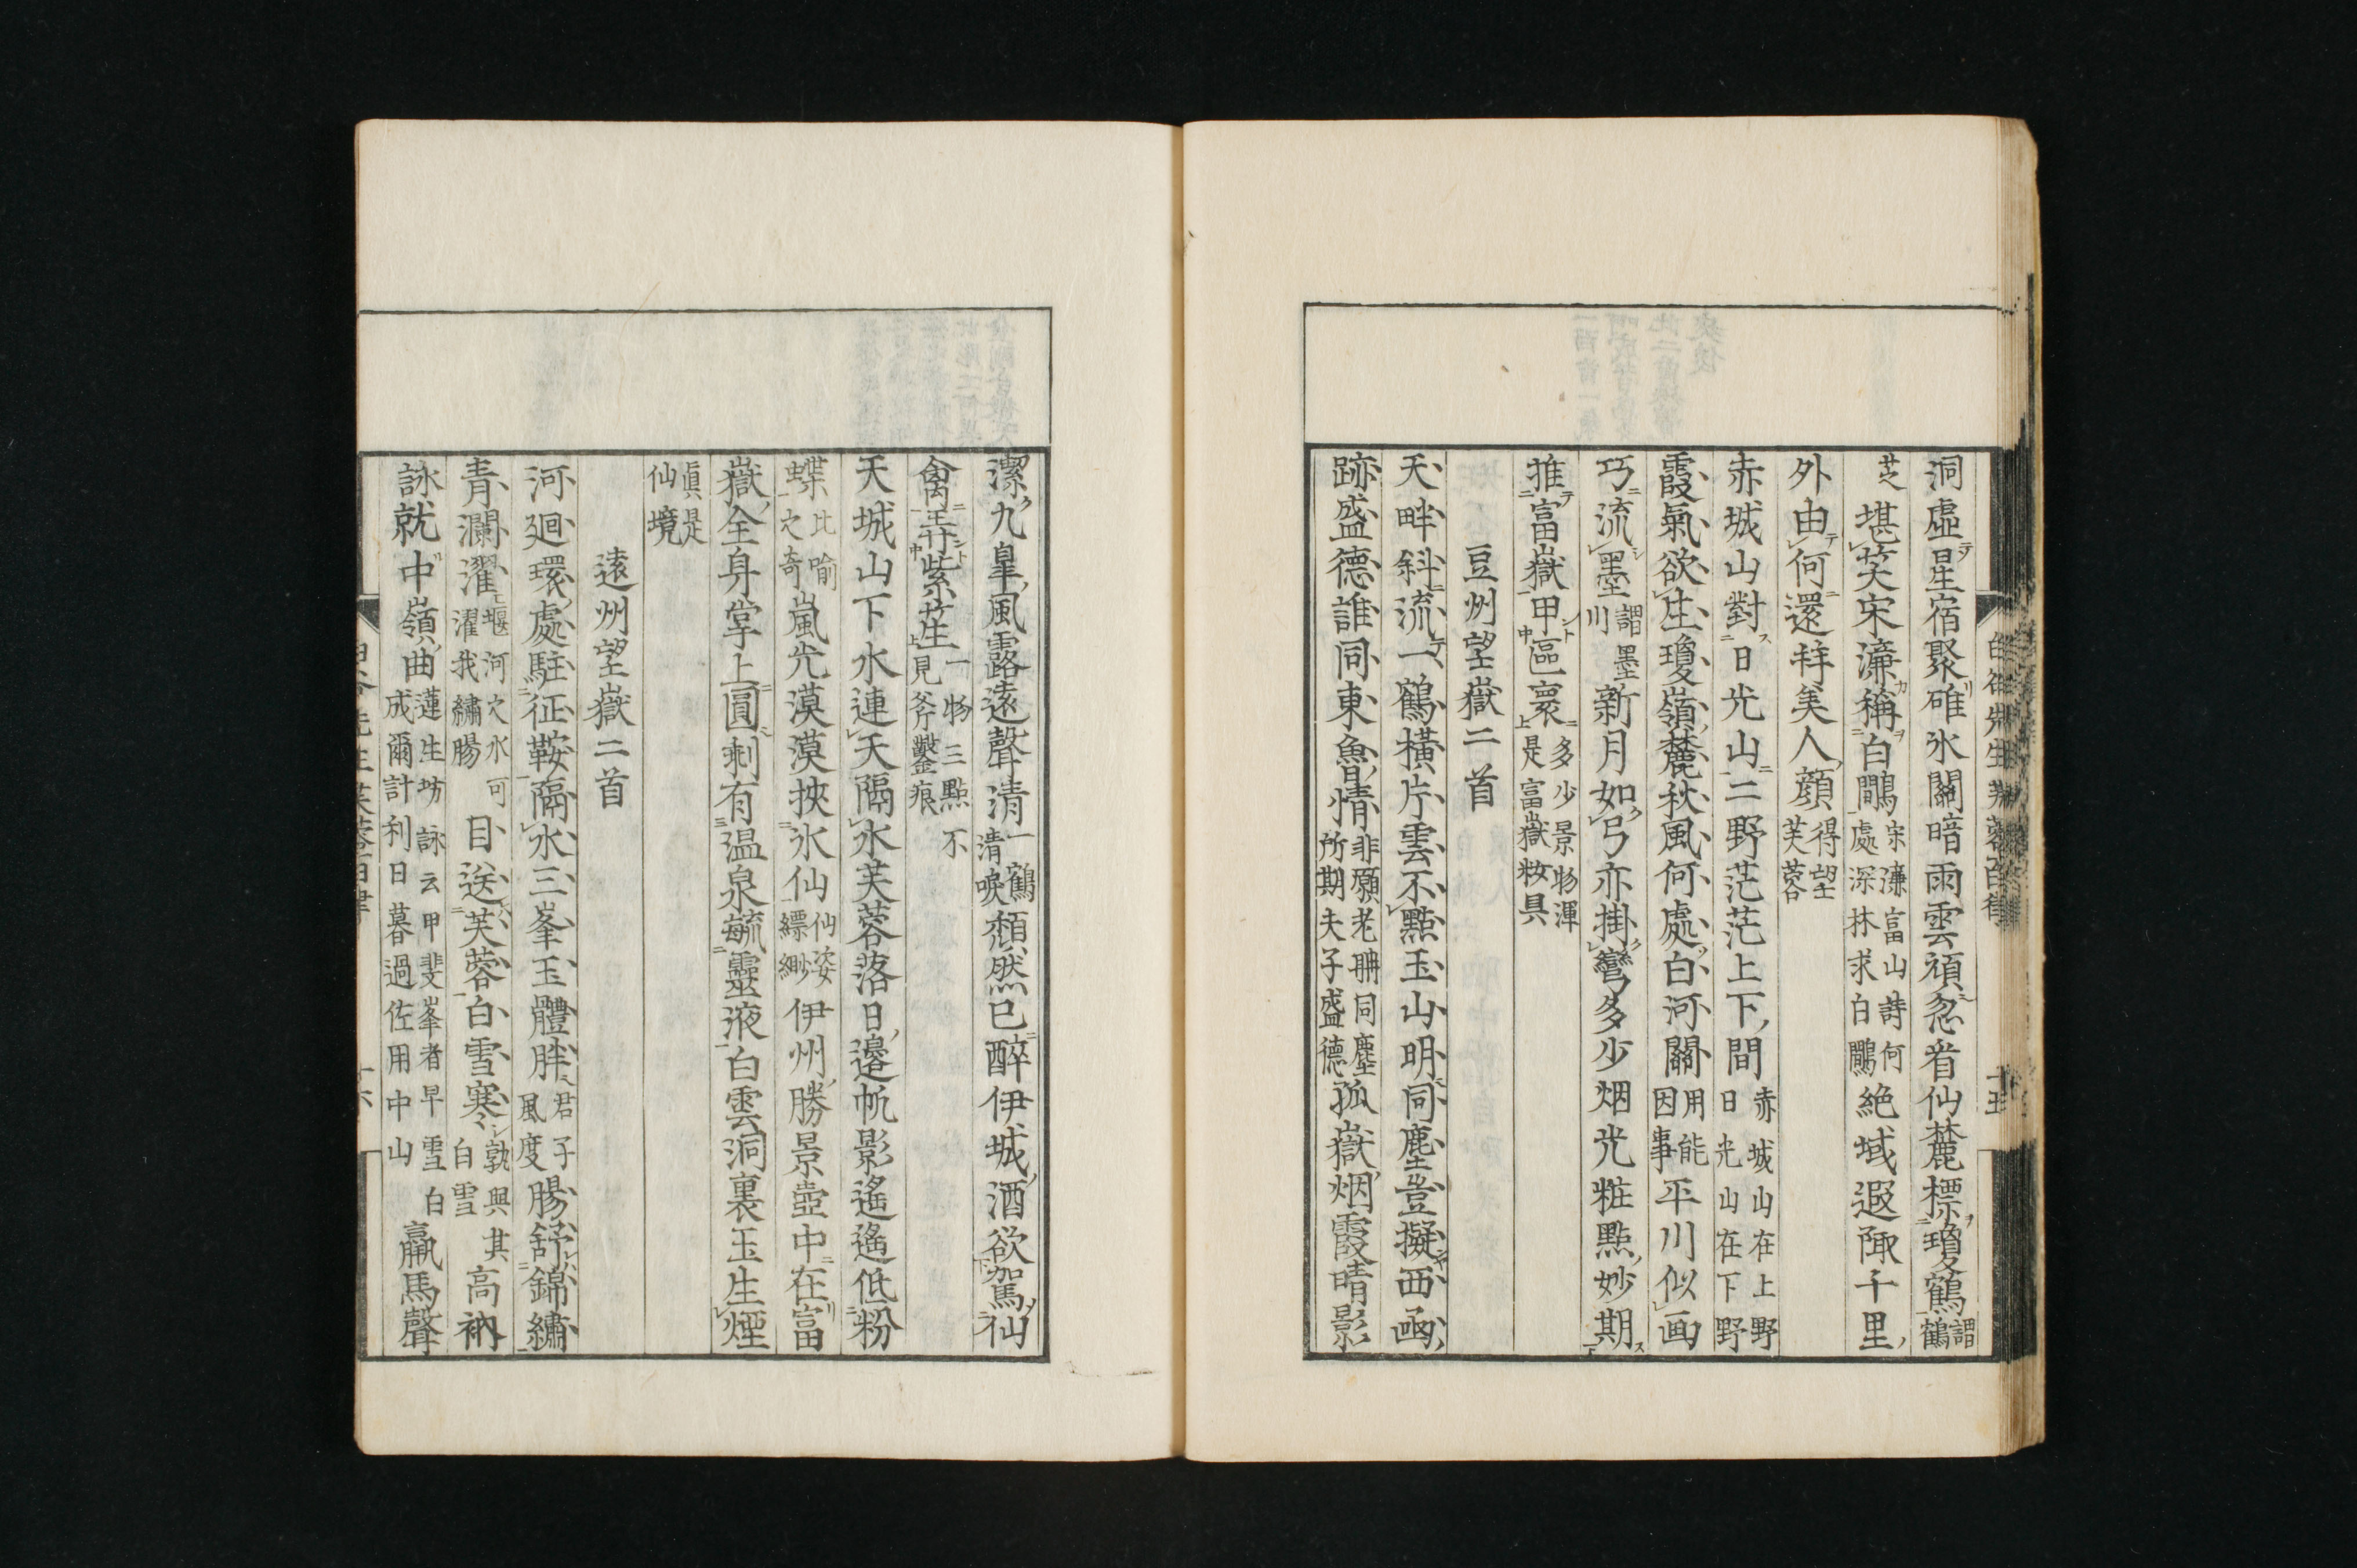 洞虛星宿聚碓氷關暗雨雲頑忽看仙麓標瓊鶴謂鶴
芝堪笑宋濂稱白鷴宋濂富山詩何處深林求白鷴絶域遐陬千里
外由何還拜美人顔得望芙蓉
赤城山對日光山二野茫茫上下間赤城山在上野日光山在下野
霞氣欲庄瓊嶺麓秋風何處白河關用能因事平川似画
巧流墨謂墨川新月如弓亦掛彎多少烟光粧點妙期
推富嶽甲區寰多少景物渾是富嶽妝具
豆州望嶽二首
天畔斜流一鶴橫片雲不點玉山明同塵豈擬西函
跡盛德誰同東魯情非願老聃同塵所期夫子盛德孤嶽烟霞晴影
潔九皐風露遠聲清一鶴清唳頹然已醉伊城酒欲駕仙
禽弄紫笙一物三點不見斧鑿痕
天城山下水連天隔水芙蓉落日邊帆影遙遙低粉
蝶比喻之奇嵐光漠漠挾氷仙仙姿縹緲伊州勝景壺中在富
嶽全身掌上圓剩有温泉毓靈液白雲洞裏玉生煙
眞是仙境
遠州望嶽二首
河廻環處駐征鞍隔水三峯玉體胖君子風度腸舒錦繡
青瀾濯堰河之水可濯我繡腸目送芙蓉白雪寒孰與其白雪高衲
詠就中嶺曲蓮生坊詠云甲斐峯者早雪白成爾計利日暮過佐用中山羸馬聲